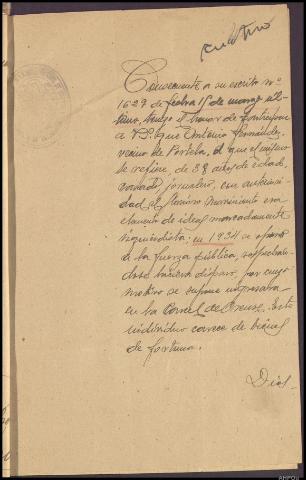 cuatro
Consecuente a su escrito nº
1629 de fecha 15 de marzo úl-
timo, tengo el honor de participar
a V.S. que Antonio Fernández,
vecino de Portela, el que el mismo
se refiere, de 38 años de edad,
casado, jornalero, con anteriori-
dad al Glorioso Movimiento era
elemento de ideas marcadamente
izquierdista; en 1934 se opuso
a la fuerza pública, sospechan-
dose hiciera disparos, por cuyo
motivo se supone ingresara
en la Carcel de Orense. Este
individuo carece de bienes
de fortuna.
Dios